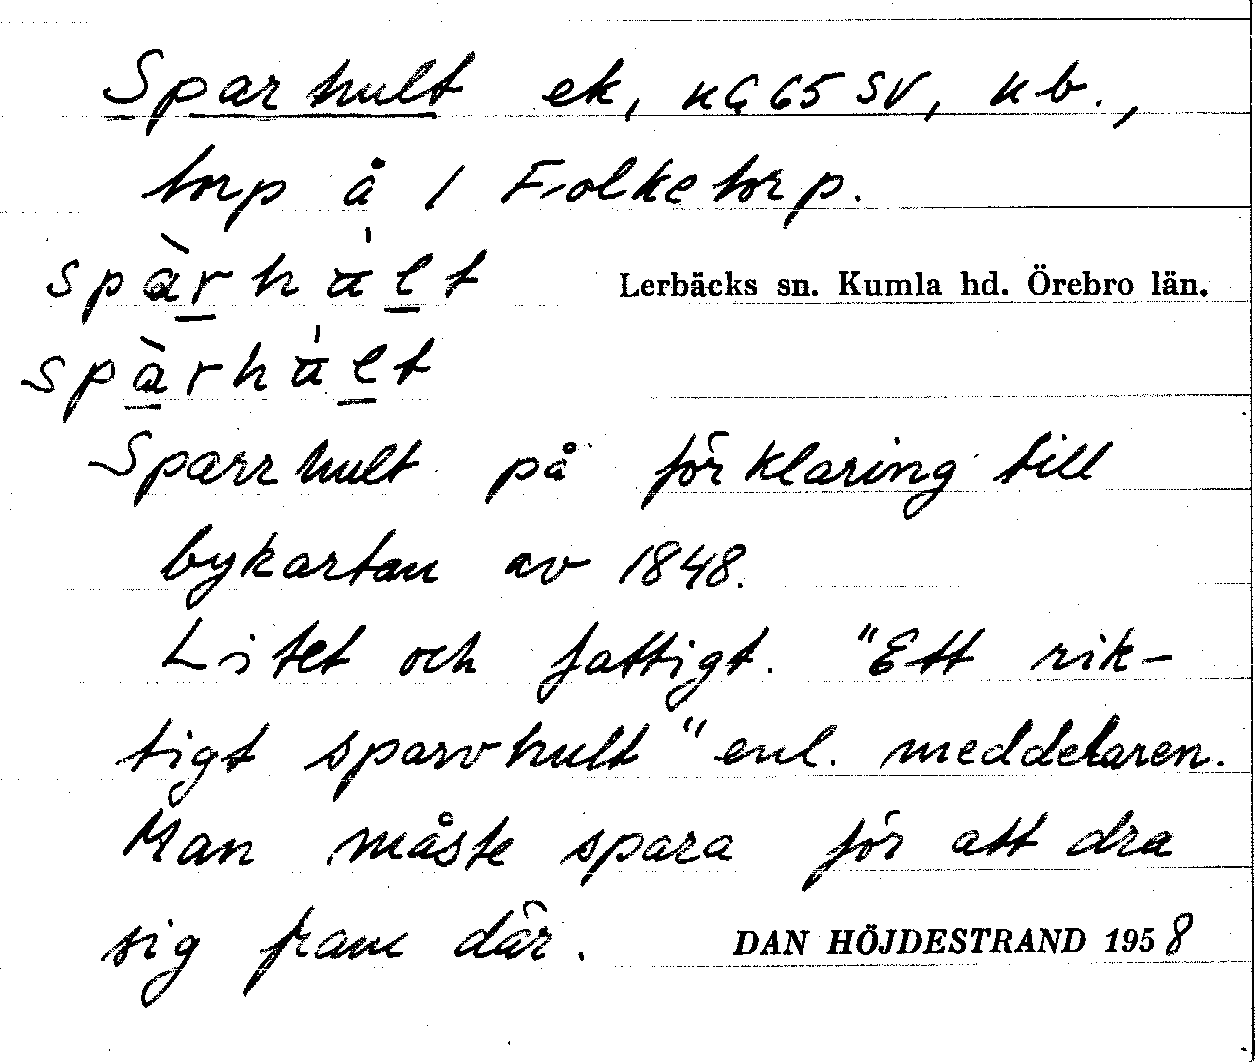 Sparhult ek, kG 65 SV, kb.,
torp å 1 Folketorp.
spàrhált
Lerbäcks sn. Kumla hd. Örebro län.
spàrhált
Sparrhult på förklaring till
bykartan av 1848.
Litet och fattigt. "Ett rik-
tigt sparvhult" enl. meddelaren.
Man måste spara för att dra
sig fram där.
DAN HÖJDESTRAND 1958